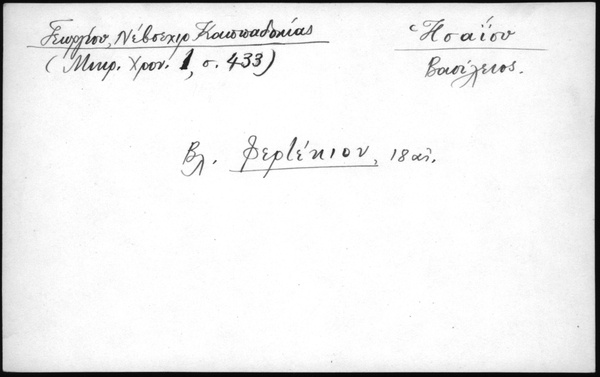 Γεωργίου, Νέβσεχιρ Καππαδοκίας
(Μικρ. Χρον. 1, σ. 433)
Ἡσαΐου
Βασίλειος.
Βλ. Φερτέκιον, 18 αἰ.